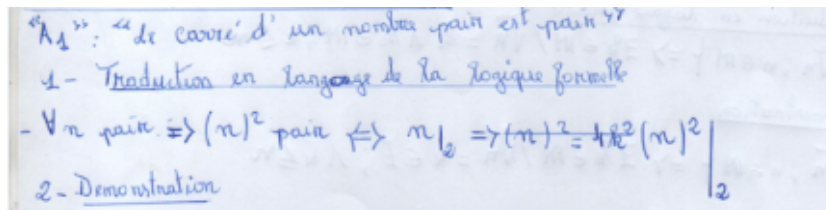 "A₁" : "Le carré d'un nombre pair est pair"
1- Traduction en langage de la logique formelle
- ∀n pair. => (n)² pair <=> n|₂ => (n)² = 4k² (n)²|₂
2- Demonstration